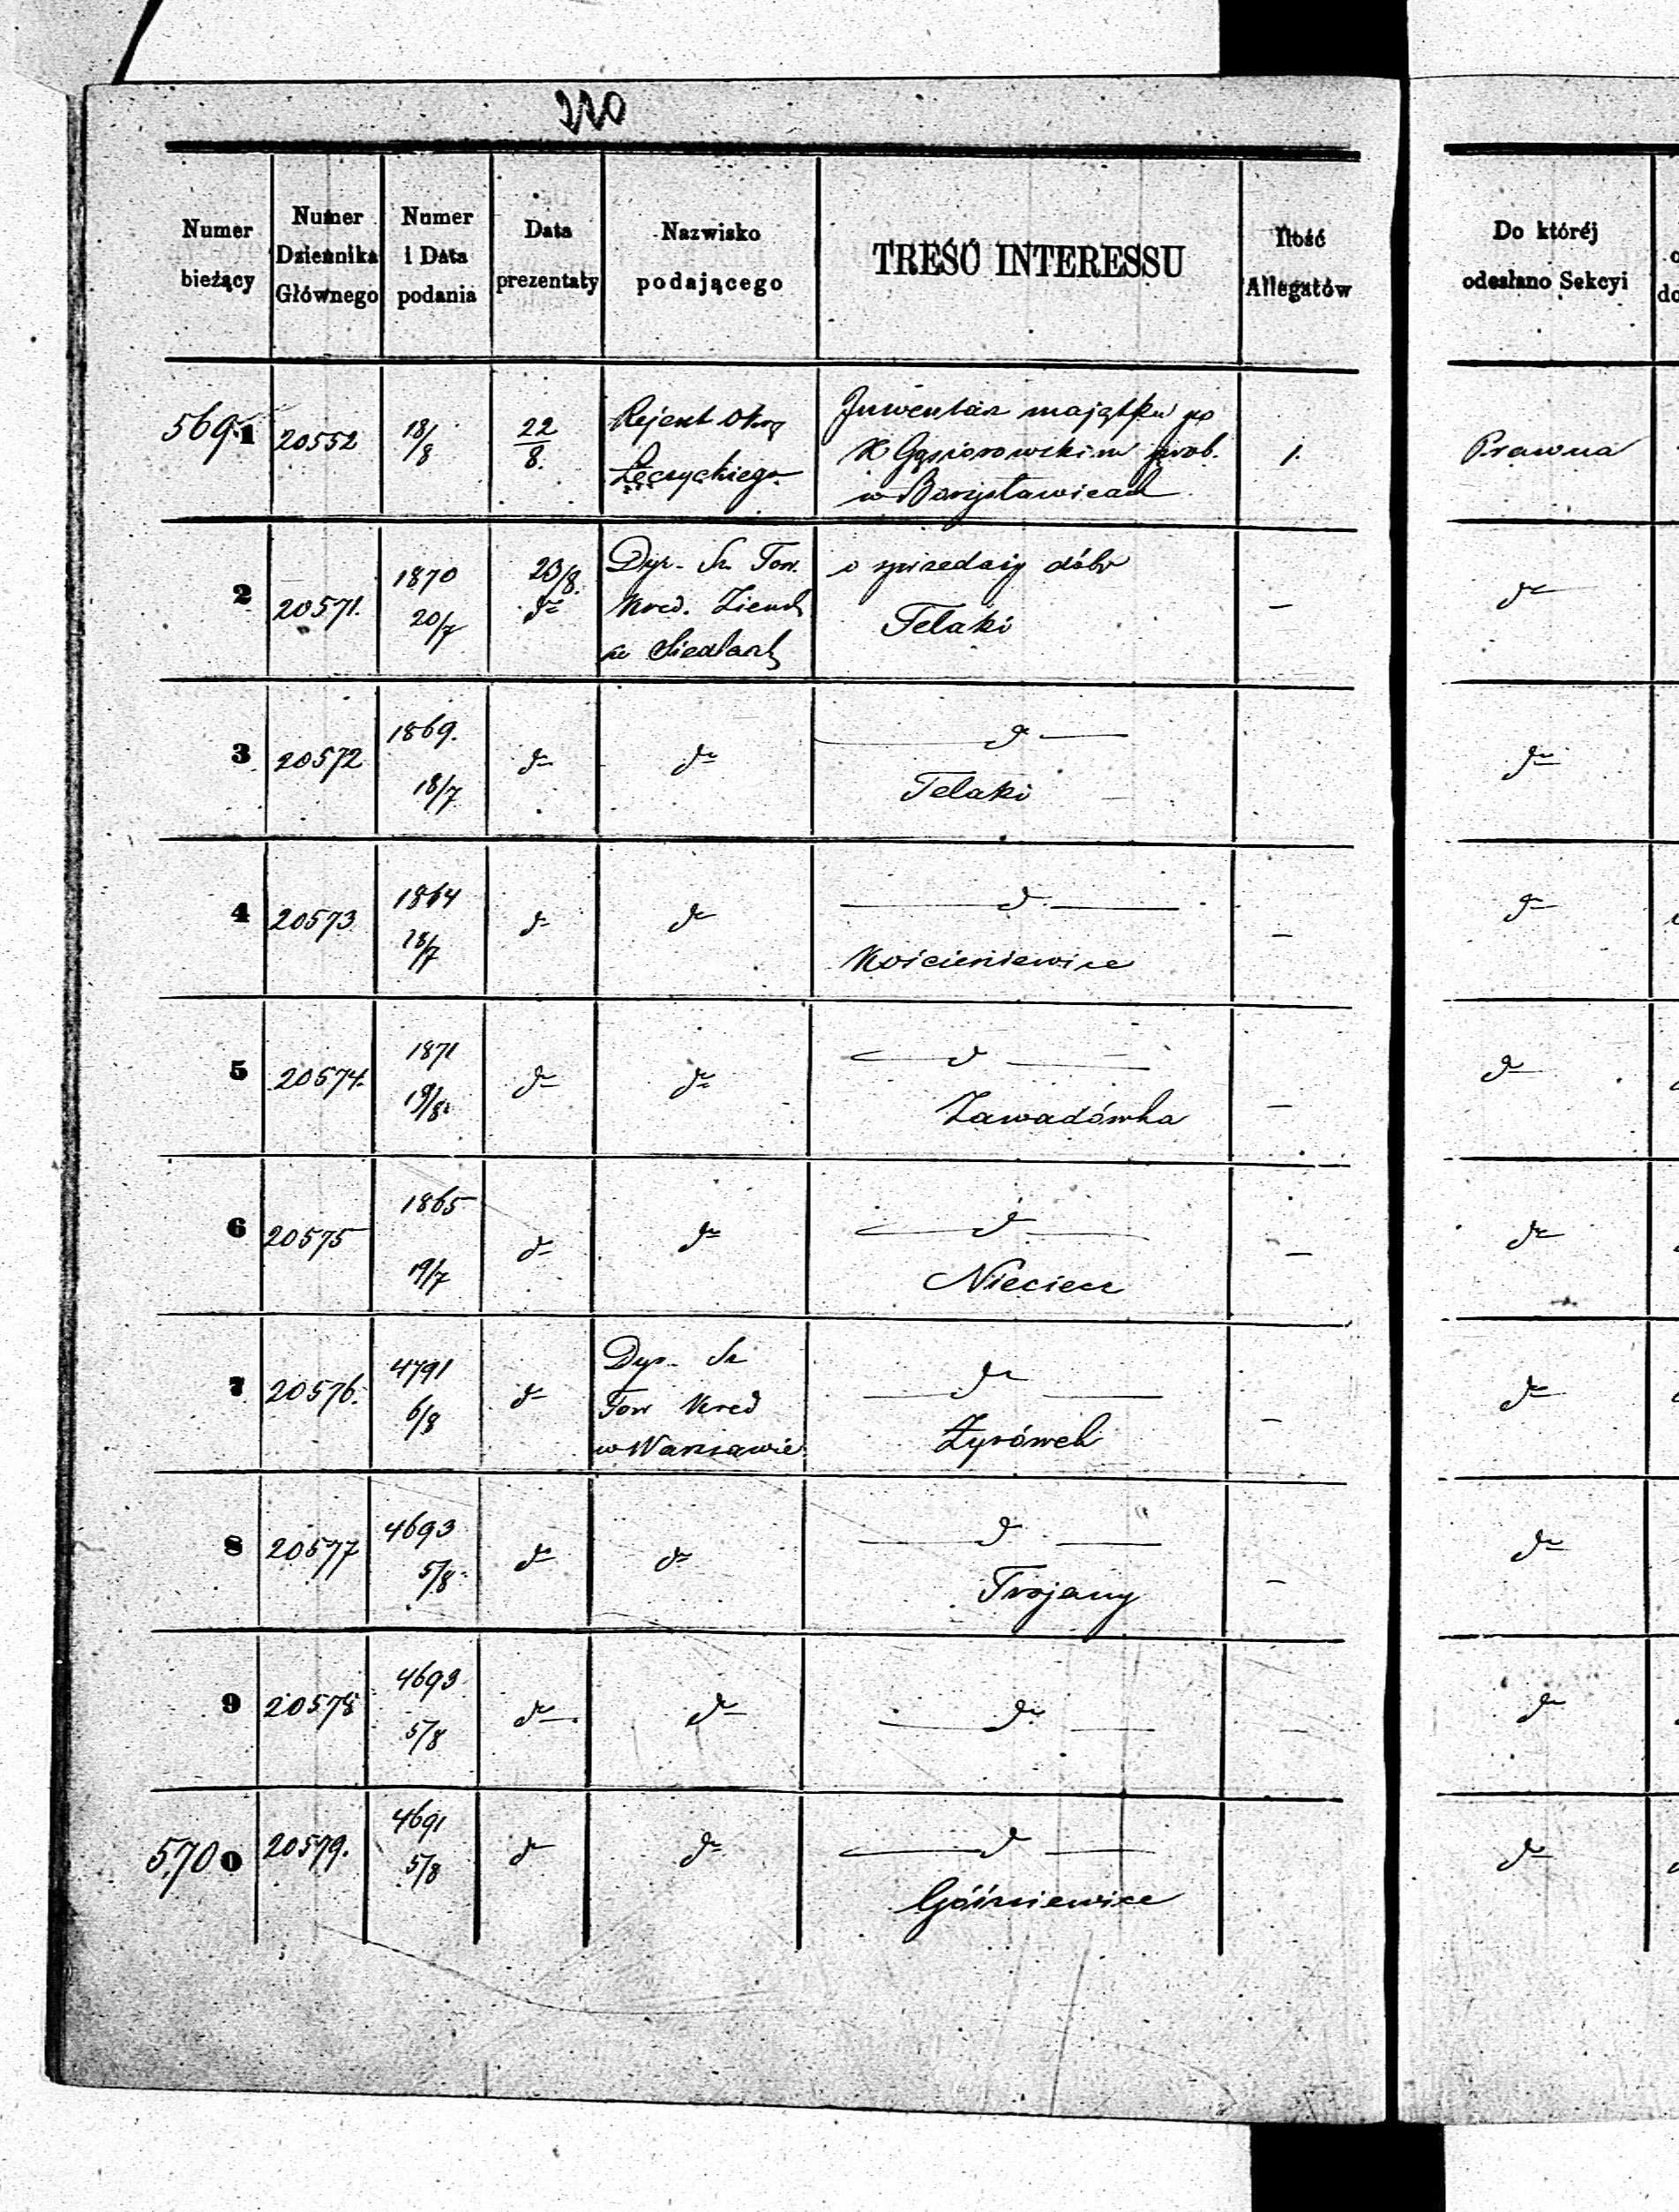 220
Numer bieżący | Numer Dziennika Głównego | Numer i Data podania | Data prezentaty | Nazwisko podającego | TREŚĆ INTERESSU | Ilość Allegatów | Do któréj odesłano Sekcyi
5691 | 20552 | 18/8 | 22/8. | Rejent Okrg Łęczyckiego | Inwentarz majątku po X Gąsiorowskim prob. w Borysławicach | 1. | Prawna
2 | 20571. | 1870 20/7 | 23/8. do | Dyr. Sz. Tow. Kred. Ziemsk w Siedlcach | o sprzedaży dóbr Telaki | — | do
3 | 20572 | 1869. 18/7 | do | do | do Telaki | | do
4 | 20573 | 1864 18/7 | do | do | do Kościeniewice | — | do
5 | 20574. | 1871 19/8. | do | do | do Zawadówka | — | do
6 | 20575 | 1865 19/7 | do | do | do Nieciecz | — | do
7 | 20576. | 4791 6/8 | do | Dyr. Sz Tow Kred w Warszawie | do Żyrówek | — | do
8 | 20577 | 4693 5/8. | do | do | do Trojany | — | do
9 | 20578 | 4693 5/8 | do | do | do | — | do
5700 | 20579. | 4691 5/8 | do | do | do | | do